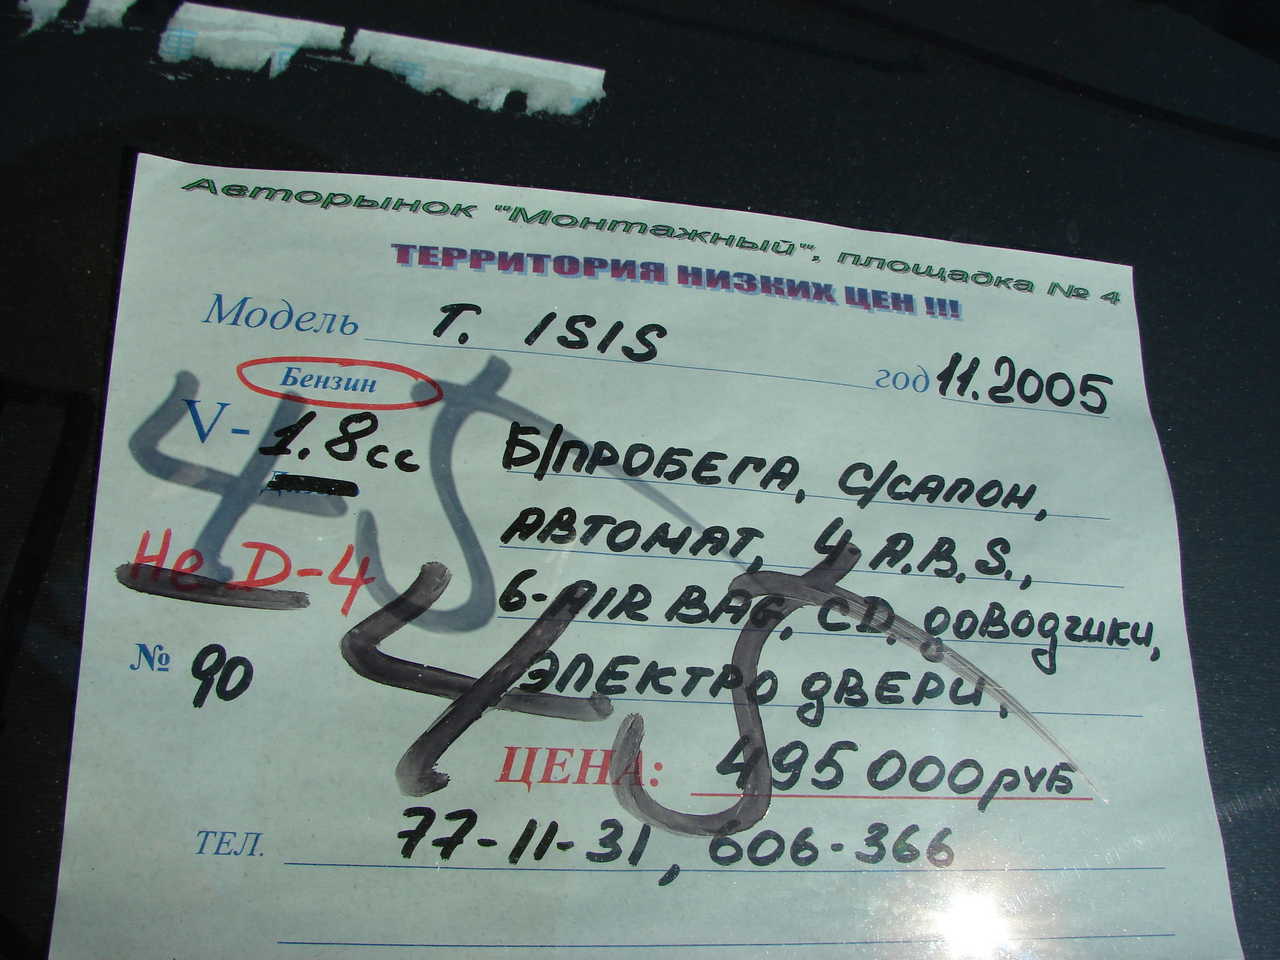 Авторынок "Монтажный", площадка № 4
ТЕРРИТОРИЯ НИЗКИХ ЦЕН !!!
Модель Т. ISIS год 11.2005
Бензин
V- 1.8сс
Не D-4
№ 90
Б/ПРОБЕГА, С/САЛОН,
АВТОМАТ, 4 A.B.S.,
6-AIR BAG, CD, доводчики,
ЭЛЕКТРО ДВЕРИ,
ЦЕНА: 495 000 руб
ТЕЛ. 77-11-31, 606-366
45